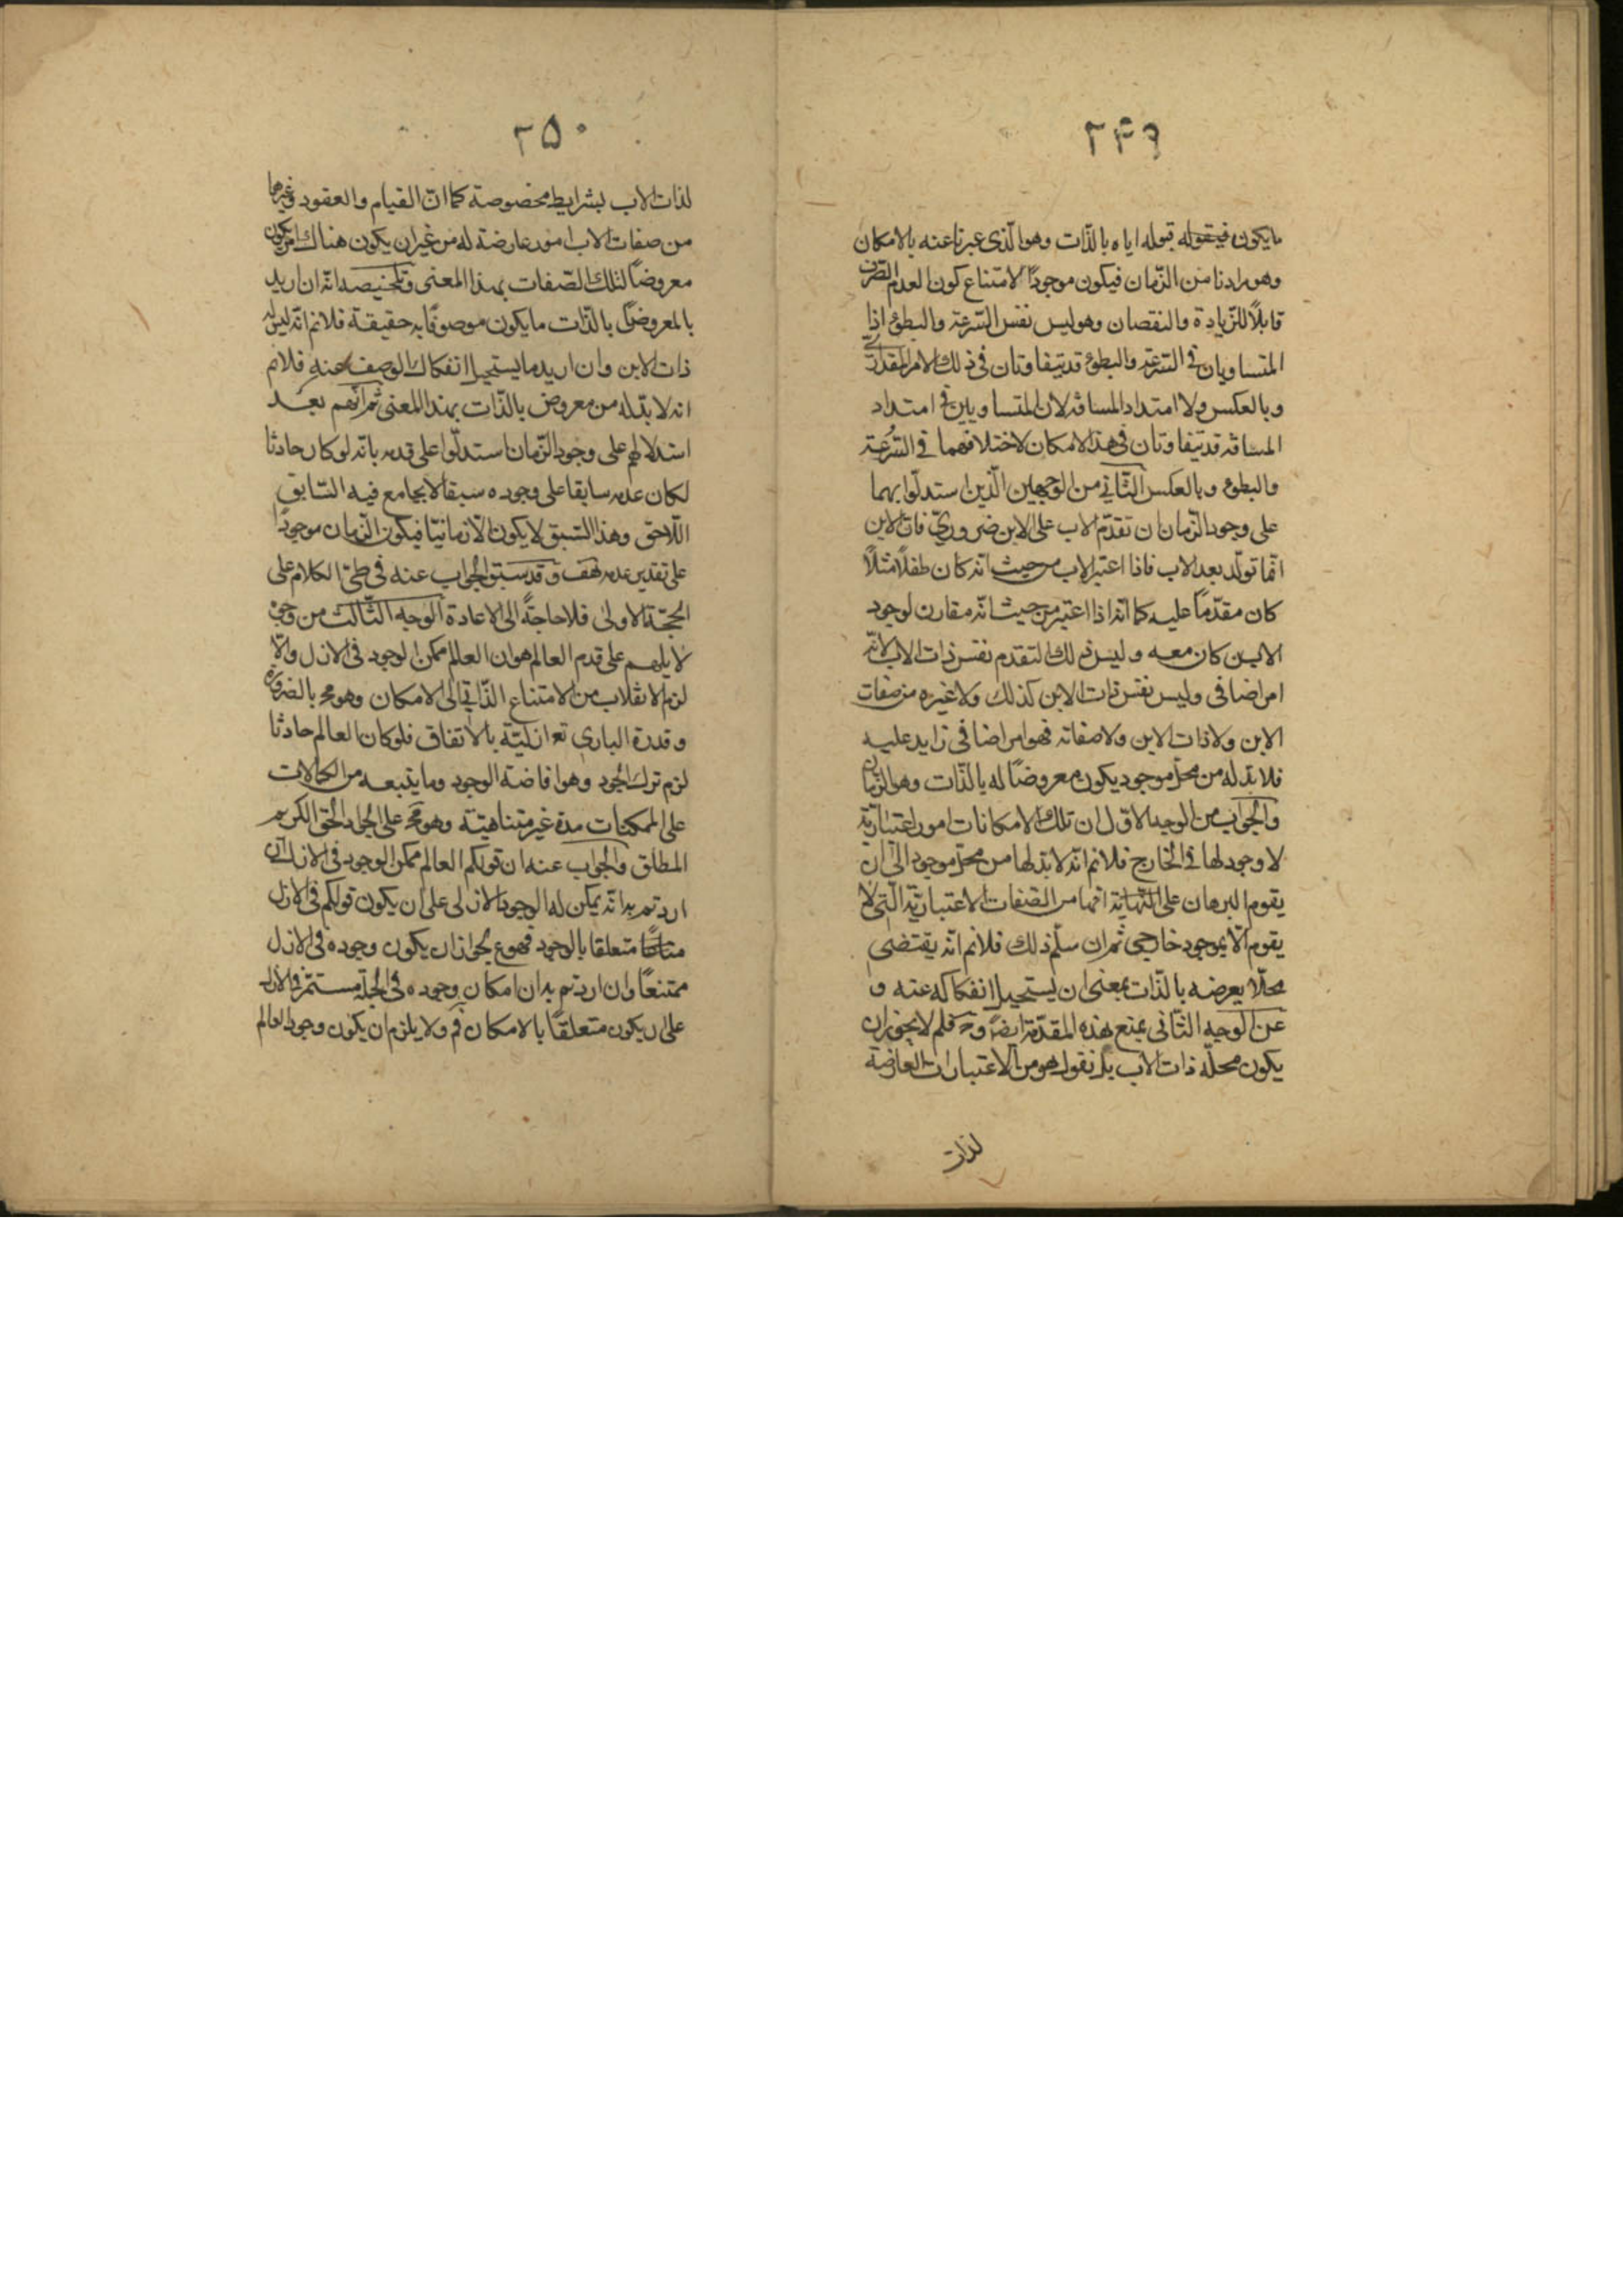 ٢٤٩
ما يكون فيقوله قبوله اياه بالذّات وهو الّذى عبرنا عنه بالامكان
وهو مرادنا من الزّمان فيكون موجوداً لامتناع كون العدم الصّرف
قابلاً للزّيادة والنقصان وهو ليس نفس السّرعة والبطؤ اذا
المتساويان فى السّرعة والبطؤ قد يتفاوتان فى ذلك الامر المقدارى
وبالعكس ولا امتداد المسافة لان المتساويين فى امتداد
المسافة قد يتفاوتان فى هذا الامكان لاختلافهما فى السّرعة
والبطوء وبالعكس الثّانى من الوجهين الّذين استدلّوا بهما
على وجود الزّمان ان تقدّم الاب على الابن ضرورىّ فان الابن
انّما تولّد بعد الاب فاذا اعتبر الاب من حيث انّه كان طفلاً مثلاً
كان مقدّماً عليه كما انّه اذا اعتبر من حيث انّه مقارن لوجود
الابن كان معه وليس ذلك التقدم نفس ذات الاب لانّه
امر اضافى وليس نفس ذات الابن كذلك ولا غيره من صفات
الابن ولا ذات الابن ولا صفاته فهو امر اضافى زايد عليه
فلا بدّ له من محلّ موجود يكون معروضاً له بالذّات وهو الزّمان
والجواب من الوجه الاوّل ان تلك الامكانات امور اعتباريّة
لا وجود لها فى الخارج فلانم انّه لا بدّ لها من محلّ موجود الى ان
يقوم البرهان على انّها من الصّفات الاعتباريّة الّتى لا
يقوم الّا بموجود خارجى ثم ان سلّم ذلك فلانم انّه يقتضى
محلّا يعرضه بالذّات بمعنى ان يستحيل انفكاكه عنه و
عن الوجه الثّانى بمنع هذه المقدّمة ايضاً وح فلم لا يجوز ان
يكون محلّه ذات الاب بل نقول هو من الاعتبارات العارضة
لذات
٢٥٠
لذات الاب بشرايط مخصوصة كما انّ القيام والعقود وغيرها
من صفات الاب امور عارضة له من غير ان يكون هناك امر يكون
معروضاً لتلك الصّفات بهذا المعنى وتلخيصه انّه ان اريد
بالمعروض بالذّات ما يكون موصوفاً به حقيقة فلانم انّه ليس له
ذات الابن وان اريد ما يستحيل انفكاك الوصف عنه فلانم
انه لا بدّ له من معروض بالذّات بهذا المعنى ثم انّهم بعد
استدلالهم على وجود الزّمان استدلّوا على قدمه بانّه لو كان حادثا
لكان عدمه سابقا على وجوده سبقا لا يجامع فيه السّابق
اللّاحق وهذا السّبق لا يكون الّا زمانيّا فيكون الزّمان موجوداً
على تقدير عدمه هف وقد سبق الجواب عنه فى طىّ الكلام على
الحجّة الاولى فلا حاجةً الى الاعادة الوجه الثّالث من وجوه
لايلهم على قدم العالم هو ان العالم ممكن الوجود فى الازل والّا
لزم الانقلاب من الامتناع الذّاتى الى الامكان وهو مح بالضرورة
وقدرة البارى تع ازليّة بالاتفاق فلو كان العالم حادثا
لزم ترك الجود وهو افاضة الوجود وما يتبعه من الكمالات
على الممكنات مدة غير متناهية وهو مح على الجواد الحق الكريم
المطلق والجواب عنه ان قولكم العالم ممكن الوجود فى الازل ان
اردتم به انّه يمكن له الوجود الازلى على ان يكون قولكم فى الازل
متعلقا بالوجود فهو ع لجواز ان يكون وجوده فى الازل
ممتنعاً وان اردتم به ان امكان وجوده فى الجملة مستمرّ فى الازل
على ان يكون متعلقاً بالامكان فم ولا يلزم ان يكون وجود العالم